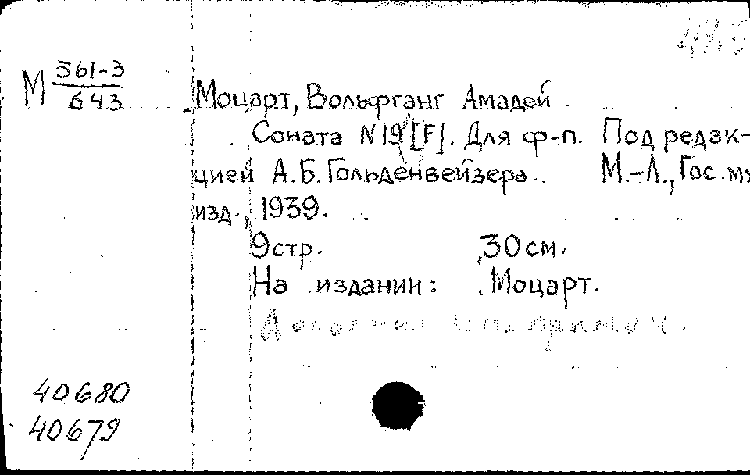 М 561-3
643
Моцарт, Вольфганг Амадей
Соната N19 [F]. Для ф-п. Под редак-
цией А.Б. Гольденвейзера. М.-Л., Гос. му
изд., 1939.
9стр. 30см.
На издании: Моцарт.
40680
40679